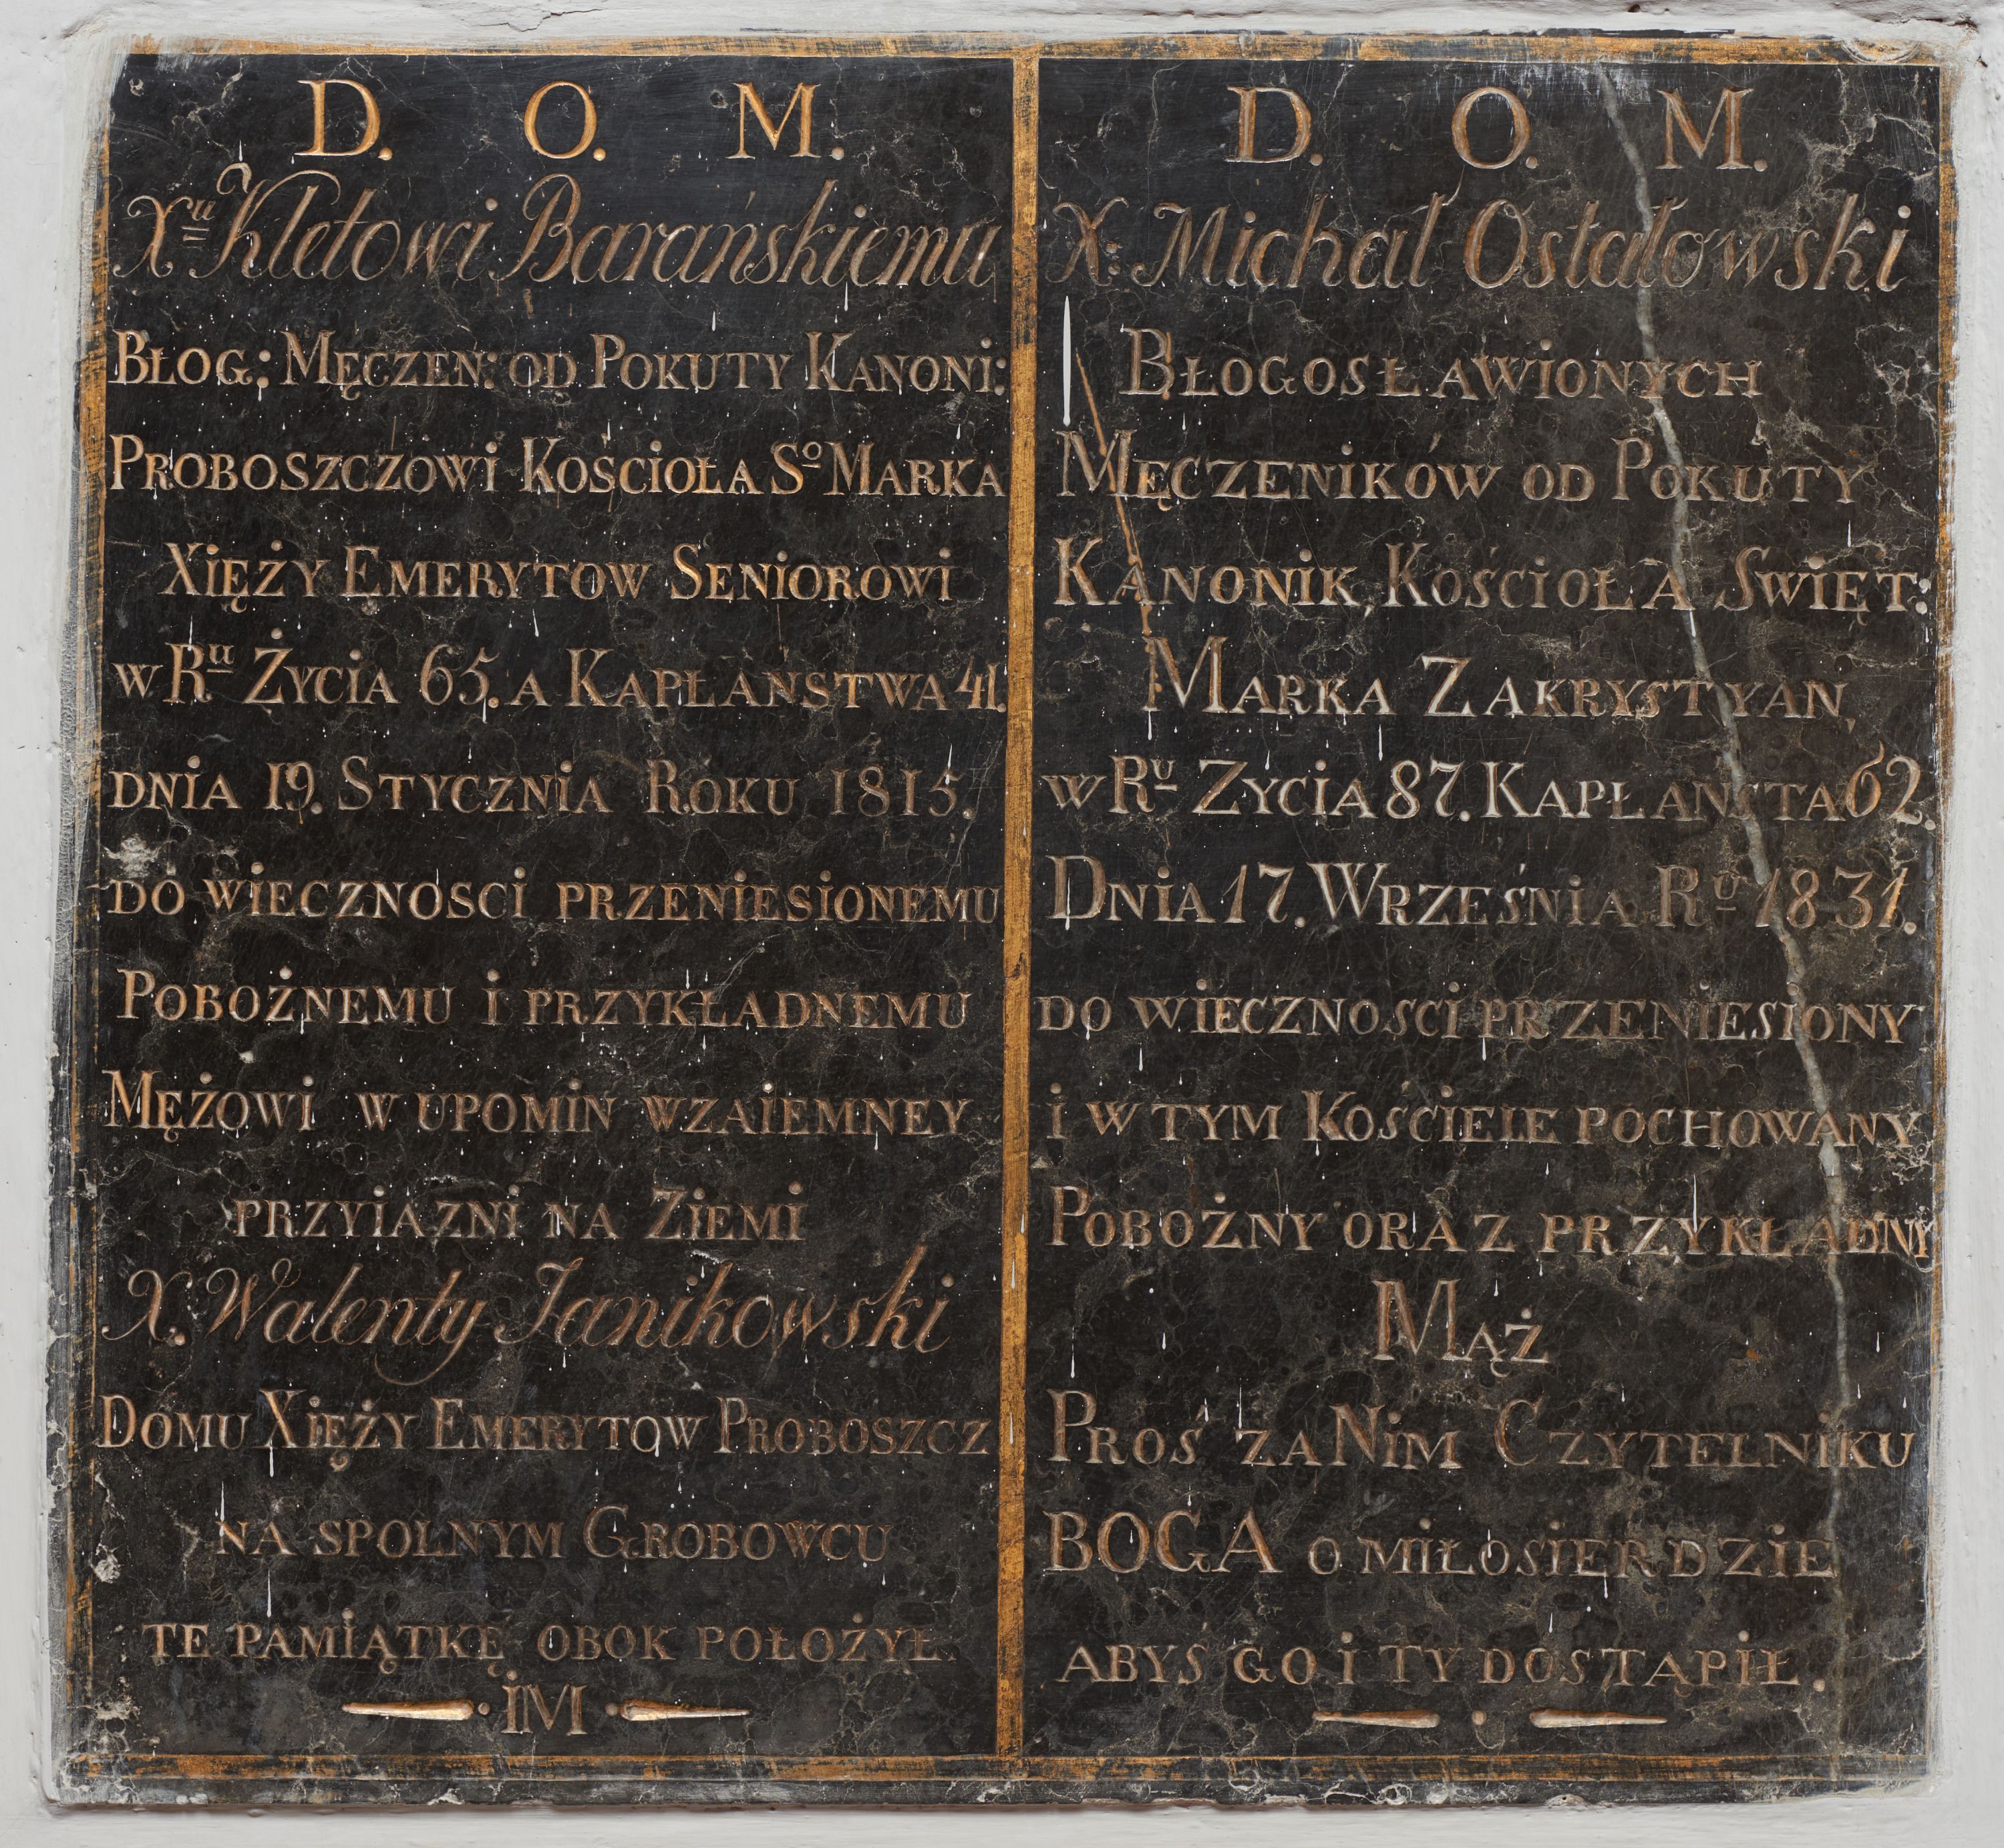 D. O. M.
Xu Kletowi Barańskiemu
BŁOG: MĘCZEN: OD POKUTY KANONI:
PROBOSZCZOWI KOŚCIOŁA So MARKA
XIĘŻY EMERYTOW SENIOROWI
W Ru ŻYCIA 65. A KAPŁAŃSTWA 41.
DNIA 19. STYCZNIA ROKU 1815.
DO WIECZNOSCI PRZENIESIONEMU
POBOŻNEMU I PRZYKŁADNEMU
MĘŻOWI W UPOMIN WZAIEMNEY
PRZYIAZNI NA ZIEMI
X. Walenty Janikowski
DOMU XIĘŻY EMERYTOW PROBOSZCZ
NA SPOLNYM GROBOWCU
TE PAMIĄTKĘ OBOK POŁOŻYŁ.
IM
D. O. M.
X: Michał Ostałowski
BŁOGOSŁAWIONYCH
MĘCZENIKÓW OD POKUTY
KANONIK, KOŚCIOŁA SWIĘT:
MARKA ZAKRYSTYAN,
W Ru ZYCIA 87. KAPŁANSTA 62.
DNIA 17. WRZEŚNIA Ru 1831.
DO WIECZNOSCI PRZENIESIONY
I W TYM KOSCIELE POCHOWANY
POBOŻNY ORAZ PRZYKŁADNY
MĄŻ
PROŚ ZA NIM CZYTELNIKU
BOGA O MIŁOSIERDZIE
ABYŚ GO I TY DOSTĄPIŁ.